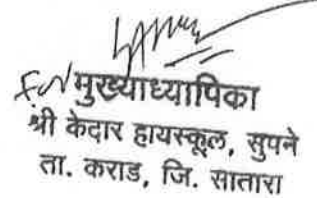 For मुख्याध्यापिका
श्री केदार हायस्कूल, सुपने
ता. कराड, जि. सातारा